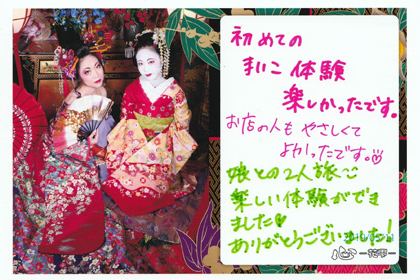 初めての
まいこ体験
楽しかったです。
お店の人もやさしくて
よかったです。
娘との2人旅〜
楽しい体験ができ
ました♥
ありがとうございました!
心